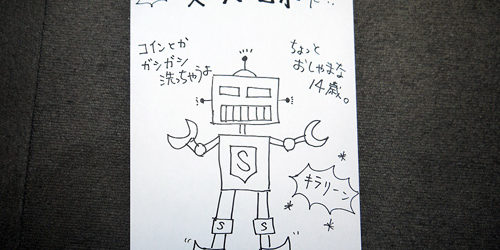 コインとか
ガシガシ
洗っちゃうよ
ちょっと
おしゃまな
14歳。
S
キラリーン
S
S